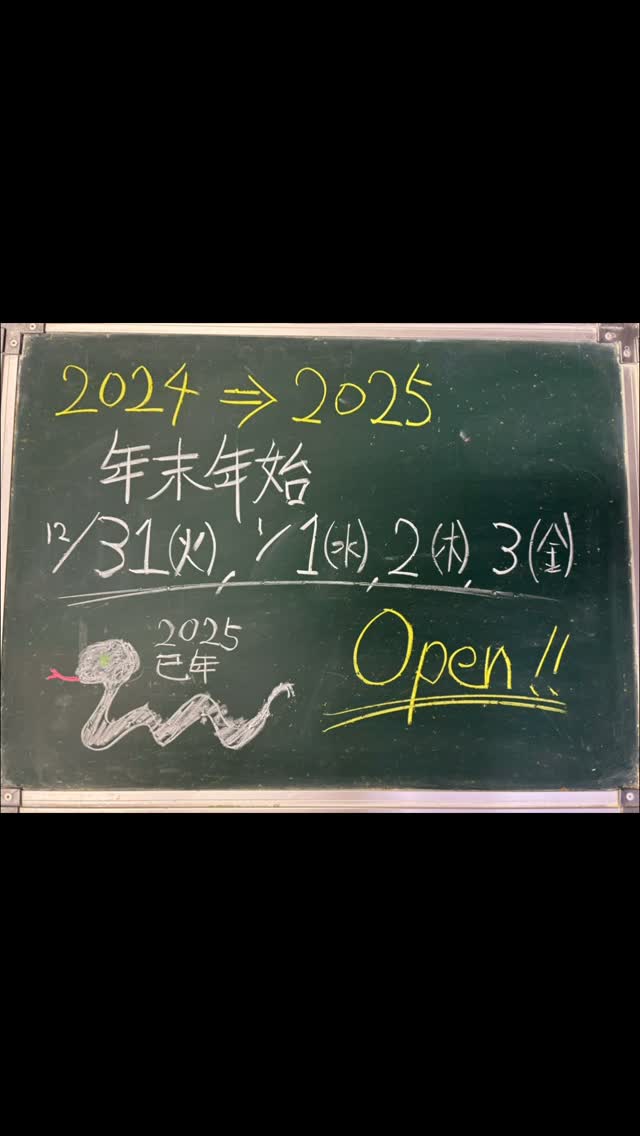 2024 ⇒ 2025
年末年始
12/31(火), 1/1(水), 2(木), 3(金)
2025
巳年
Open!!